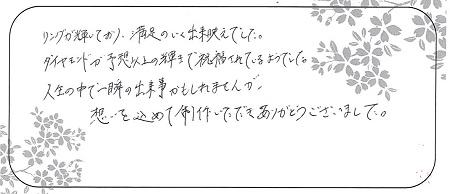 リングが輝しており、満足のいく出来映えでした。
ダイヤモンドが予想以上の輝きで祝福されているようでした。
人生の中で一瞬の出来事かもしれませんが、
想いを込めて制作いただきありがとうございました。